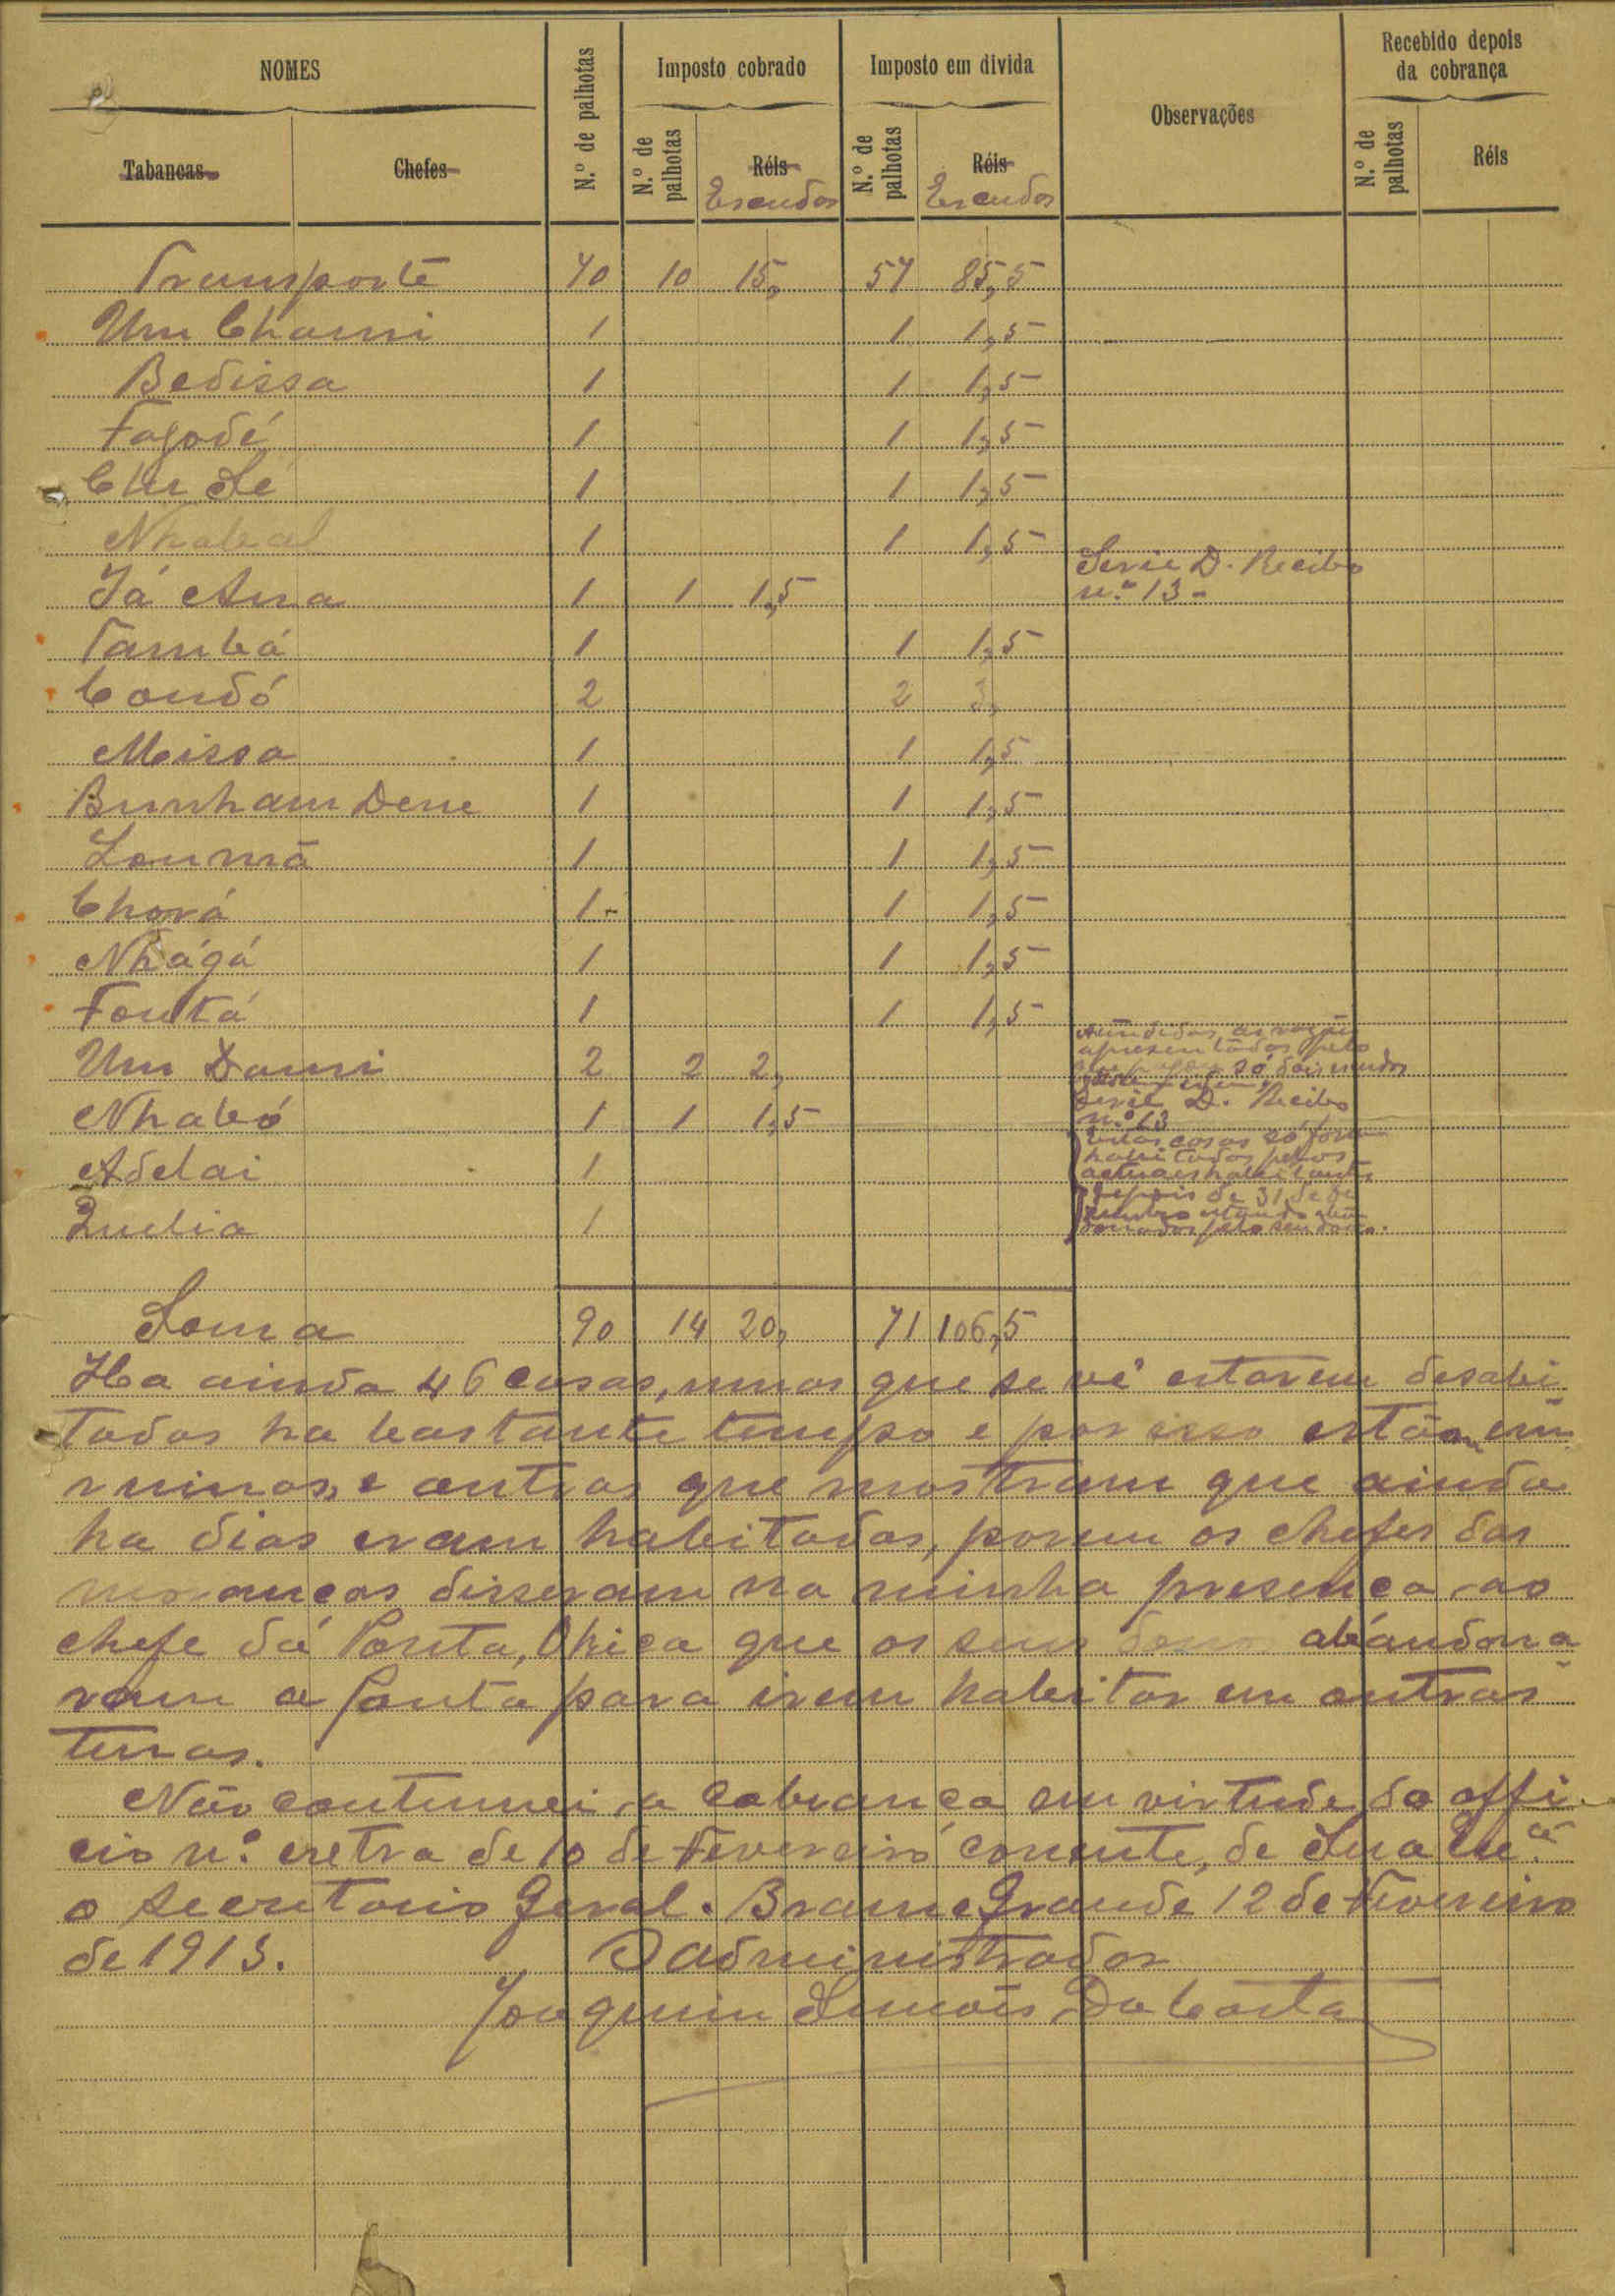 NOMES
N.º de palhotas
Imposto cobrado
Imposto em divida
Observações
Recebido depois
da cobrança
Tabancas
Chefes
N.º de palhotas
Réis
Escudos
N.º de palhotas
Réis
Escudos
N.º de palhotas
Réis
Transporte 70 10 15, 57 85,5
Um Chami 1 1 1,5
Bedissa 1 1 1,5
Fogodé 1 1 1,5
Chu Sé 1 1 1,5
Nhabal 1 1 1,5
Já Ana 1 1 1,5 Serie D. Recibo
n.º 13-
Tambá 1 1 1,5
Condó 2 2 3,
Meissa 1 1 1,5
Bunham Dene 1 1 1,5
Loumã 1 1 1,5
Chorá 1- 1 1,5
Nhágá 1 1 1,5
Foutá 1 1 1,5
Um Dami 2 2 2, Atendidas as razões
apresentadas pelo
só dois escudos
Nhabó 1 1 1,5 Serie D. Recibo
n.º 13
Adelai 1 Estas casas só foram
habitadas pelos
actuaes habitantes
Quelia 1 depois de 31 de De
zembro estando aban
donadas pelo seu dono.
Soma 90 14 20, 71 106,5
Ha ainda 46 casas, umas que se vê estarem desabi
tadas ha bastante tempo e por isso estão em
ruinas, e outras que mostram que ainda
ha dias eram habitadas, porem os chefes das
moranças disseram na minha presença ao
chefe da Ponta, Ohica que os seus donos abandona
ram a Ponta para irem habitar em outras
terras.
Não continuei a cobrança em virtude do offi
cio n.º extra de 10 de Fevereiro corrente, de Sua Exc.ª
o Secretario Geral. Brame Grande 12 de Fevereiro
de 1915.
O administrador
Joaquim Simões Da Costa